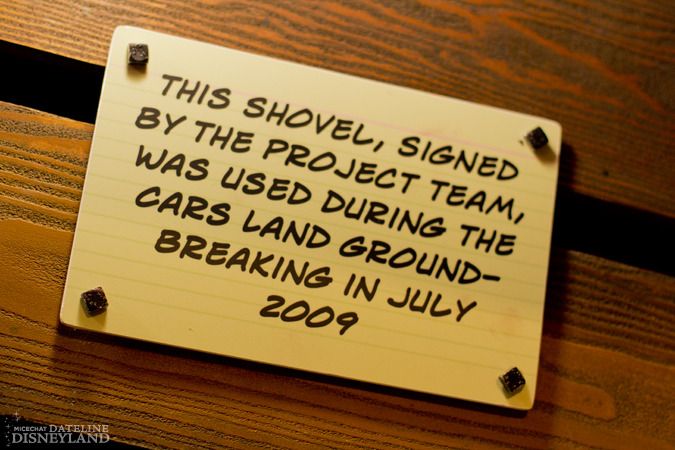 THIS SHOVEL, SIGNED
BY THE PROJECT TEAM,
WAS USED DURING THE
CARS LAND GROUND-
BREAKING IN JULY
2009
MICECHAT DATELINE
DISNEYLAND